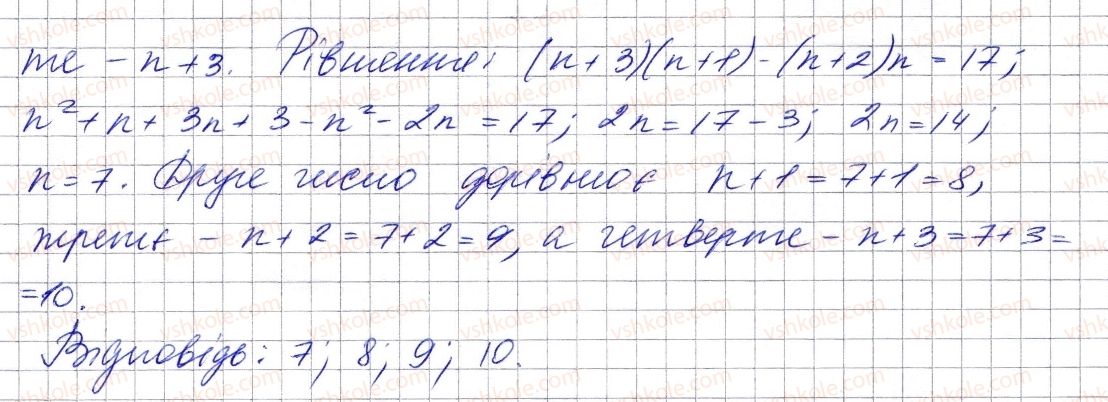 те - n + 3. Рівняння: (n + 3)(n + 1) - (n + 2)n = 17;
n² + n + 3n + 3 - n² - 2n = 17; 2n = 17 - 3; 2n = 14;
n = 7. Друге число дорівнює n + 1 = 7 + 1 = 8,
третє - n + 2 = 7 + 2 = 9, а четверте - n + 3 = 7 + 3 =
= 10.
Відповідь: 7; 8; 9; 10.